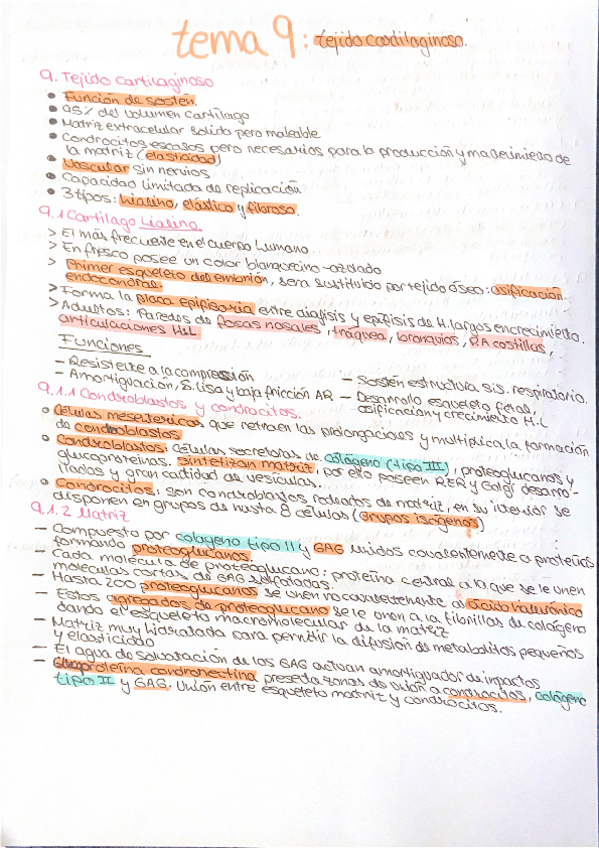 tema 9: tejido cartilaginoso.
9. Tejido cartilaginoso
• Función de sosten.
• 95% del volumen cartílago
• Matriz extracelular solida pero maleable
• Condrocitos escasos pero necesarios para la producción y matenimiento de
la matriz (elasticidad)
• Vascular sin nervios
• Capacidad limitada de replicación.
• 3 tipos: hialino, elástico y fibroso.
9.1 Cartilago Hialino
> El más frecuente en el cuerpo humano
> En fresco posee un color blanquecino-azulado
> Primer esqueleto del embrión, sera sustituido por tejido óseo: osificación
endocondral.
> Forma la placa epifisaria entre diafisis y epifisis de H. largos en crecimiento.
> Adultos: Paredes de fosas nasales, tráquea, bronquios, P.A costillas,
articulaciones H.L
Funciones
- Resistente a la compresión
- Sosten estructura sis. respiratorio.
- Amortiguación, S. lisa y baja fricción AR
- Desarrollo esqueleto fetal,
osificación y crecimiento H.L
9.1.1 Condroblastos y condrocitos.
• Celulas mesentericos que retraen las prolongaciones y multiplica la formación
de condroblastos
• Condroblastos: Células secretoras de colágeno (tipo III), proteoglucanos y
glucoproteínas. Sintetizan matriz, por ello poseen RER y Golgi desarro-
llados y gran cantidad de vesículas.
• Condrocitos: son condroblastos rodeados de matriz, en su interior se
disponen en grupos de hasta 8 células (grupos isógenos)
9.1.2 Matriz
- Compuesto por colageno tipo II y GAG unidos covalentemente a proteínas
formando proteoglucanos.
- Cada molécula de proteoglucano: proteína central a la que se le unen
moleculas cortas de GAG sulfatadas.
- Hasta 200 proteoglucanos se unen no covalentemente al ácido hialurónico
- Estos agregados de proteoglucano se le unen a la fibrillas de colágeno
dando el esqueleto macromolecular de la matriz
- Matriz muy hidratada para permitir la difusión de metabolitos pequeños
y elasticidad
- El agua de solvatación de los GAG actuan amortiguador de impactos
- Glucoproteína condronectina preseta zonas de unión a condrocitos, colágeno
tipo II y GAG. Unión entre esqueleto matriz y condrocitos.